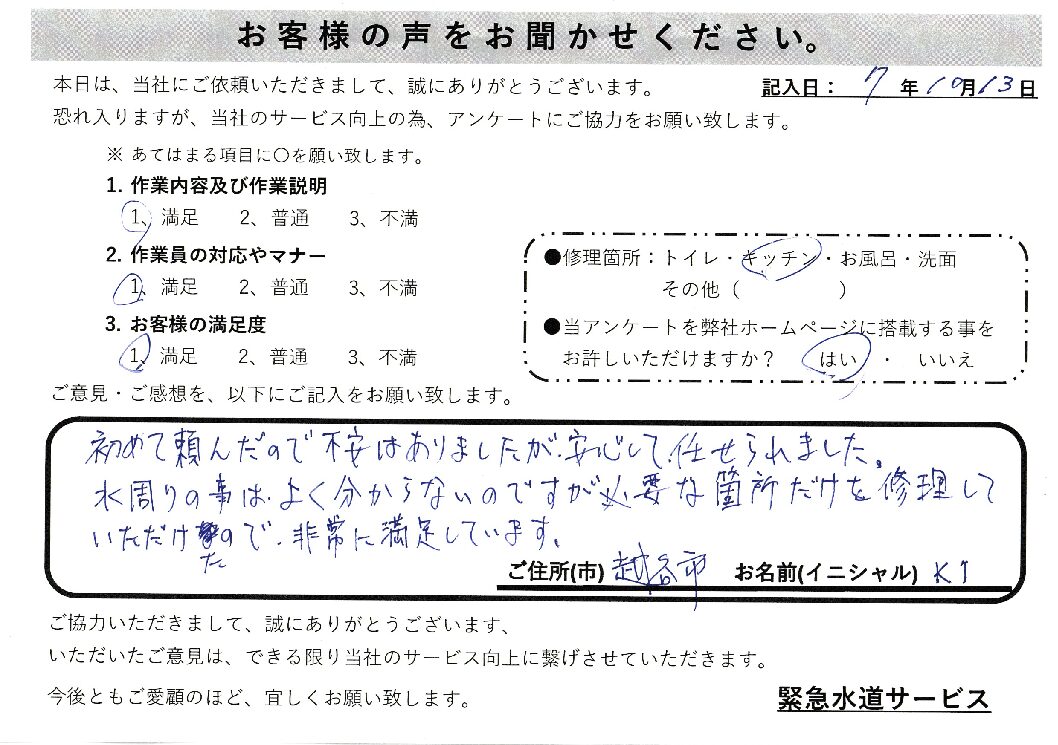 お客様の声をお聞かせください。
本日は、当社にご依頼いただきまして、誠にありがとうございます。
記入日： 7 年 10月 13 日
恐れ入りますが、当社のサービス向上の為、アンケートにご協力をお願い致します。
※ あてはまる項目に〇を願い致します。
1. 作業内容及び作業説明
1、満足 2、普通 3、不満
2. 作業員の対応やマナー
1、満足 2、普通 3、不満
3. お客様の満足度
1、満足 2、普通 3、不満
●修理箇所：トイレ・キッチン・お風呂・洗面
その他（ ）
●当アンケートを弊社ホームページに搭載する事を
お許しいただけますか？ はい ・ いいえ
ご意見・ご感想を、以下にご記入をお願い致します。
初めて頼んだので不安はありましたが、安心して任せられました。
水周りの事は、よく分からないのですが必要な箇所だけを修理して
いただけたので、非常に満足しています。
ご住所(市) 越谷市 お名前(イニシャル)
ご協力いただきまして、誠にありがとうございます、
いただいたご意見は、できる限り当社のサービス向上に繋げさせていただきます。
今後ともご愛顧のほど、宜しくお願い致します。
緊急水道サービス